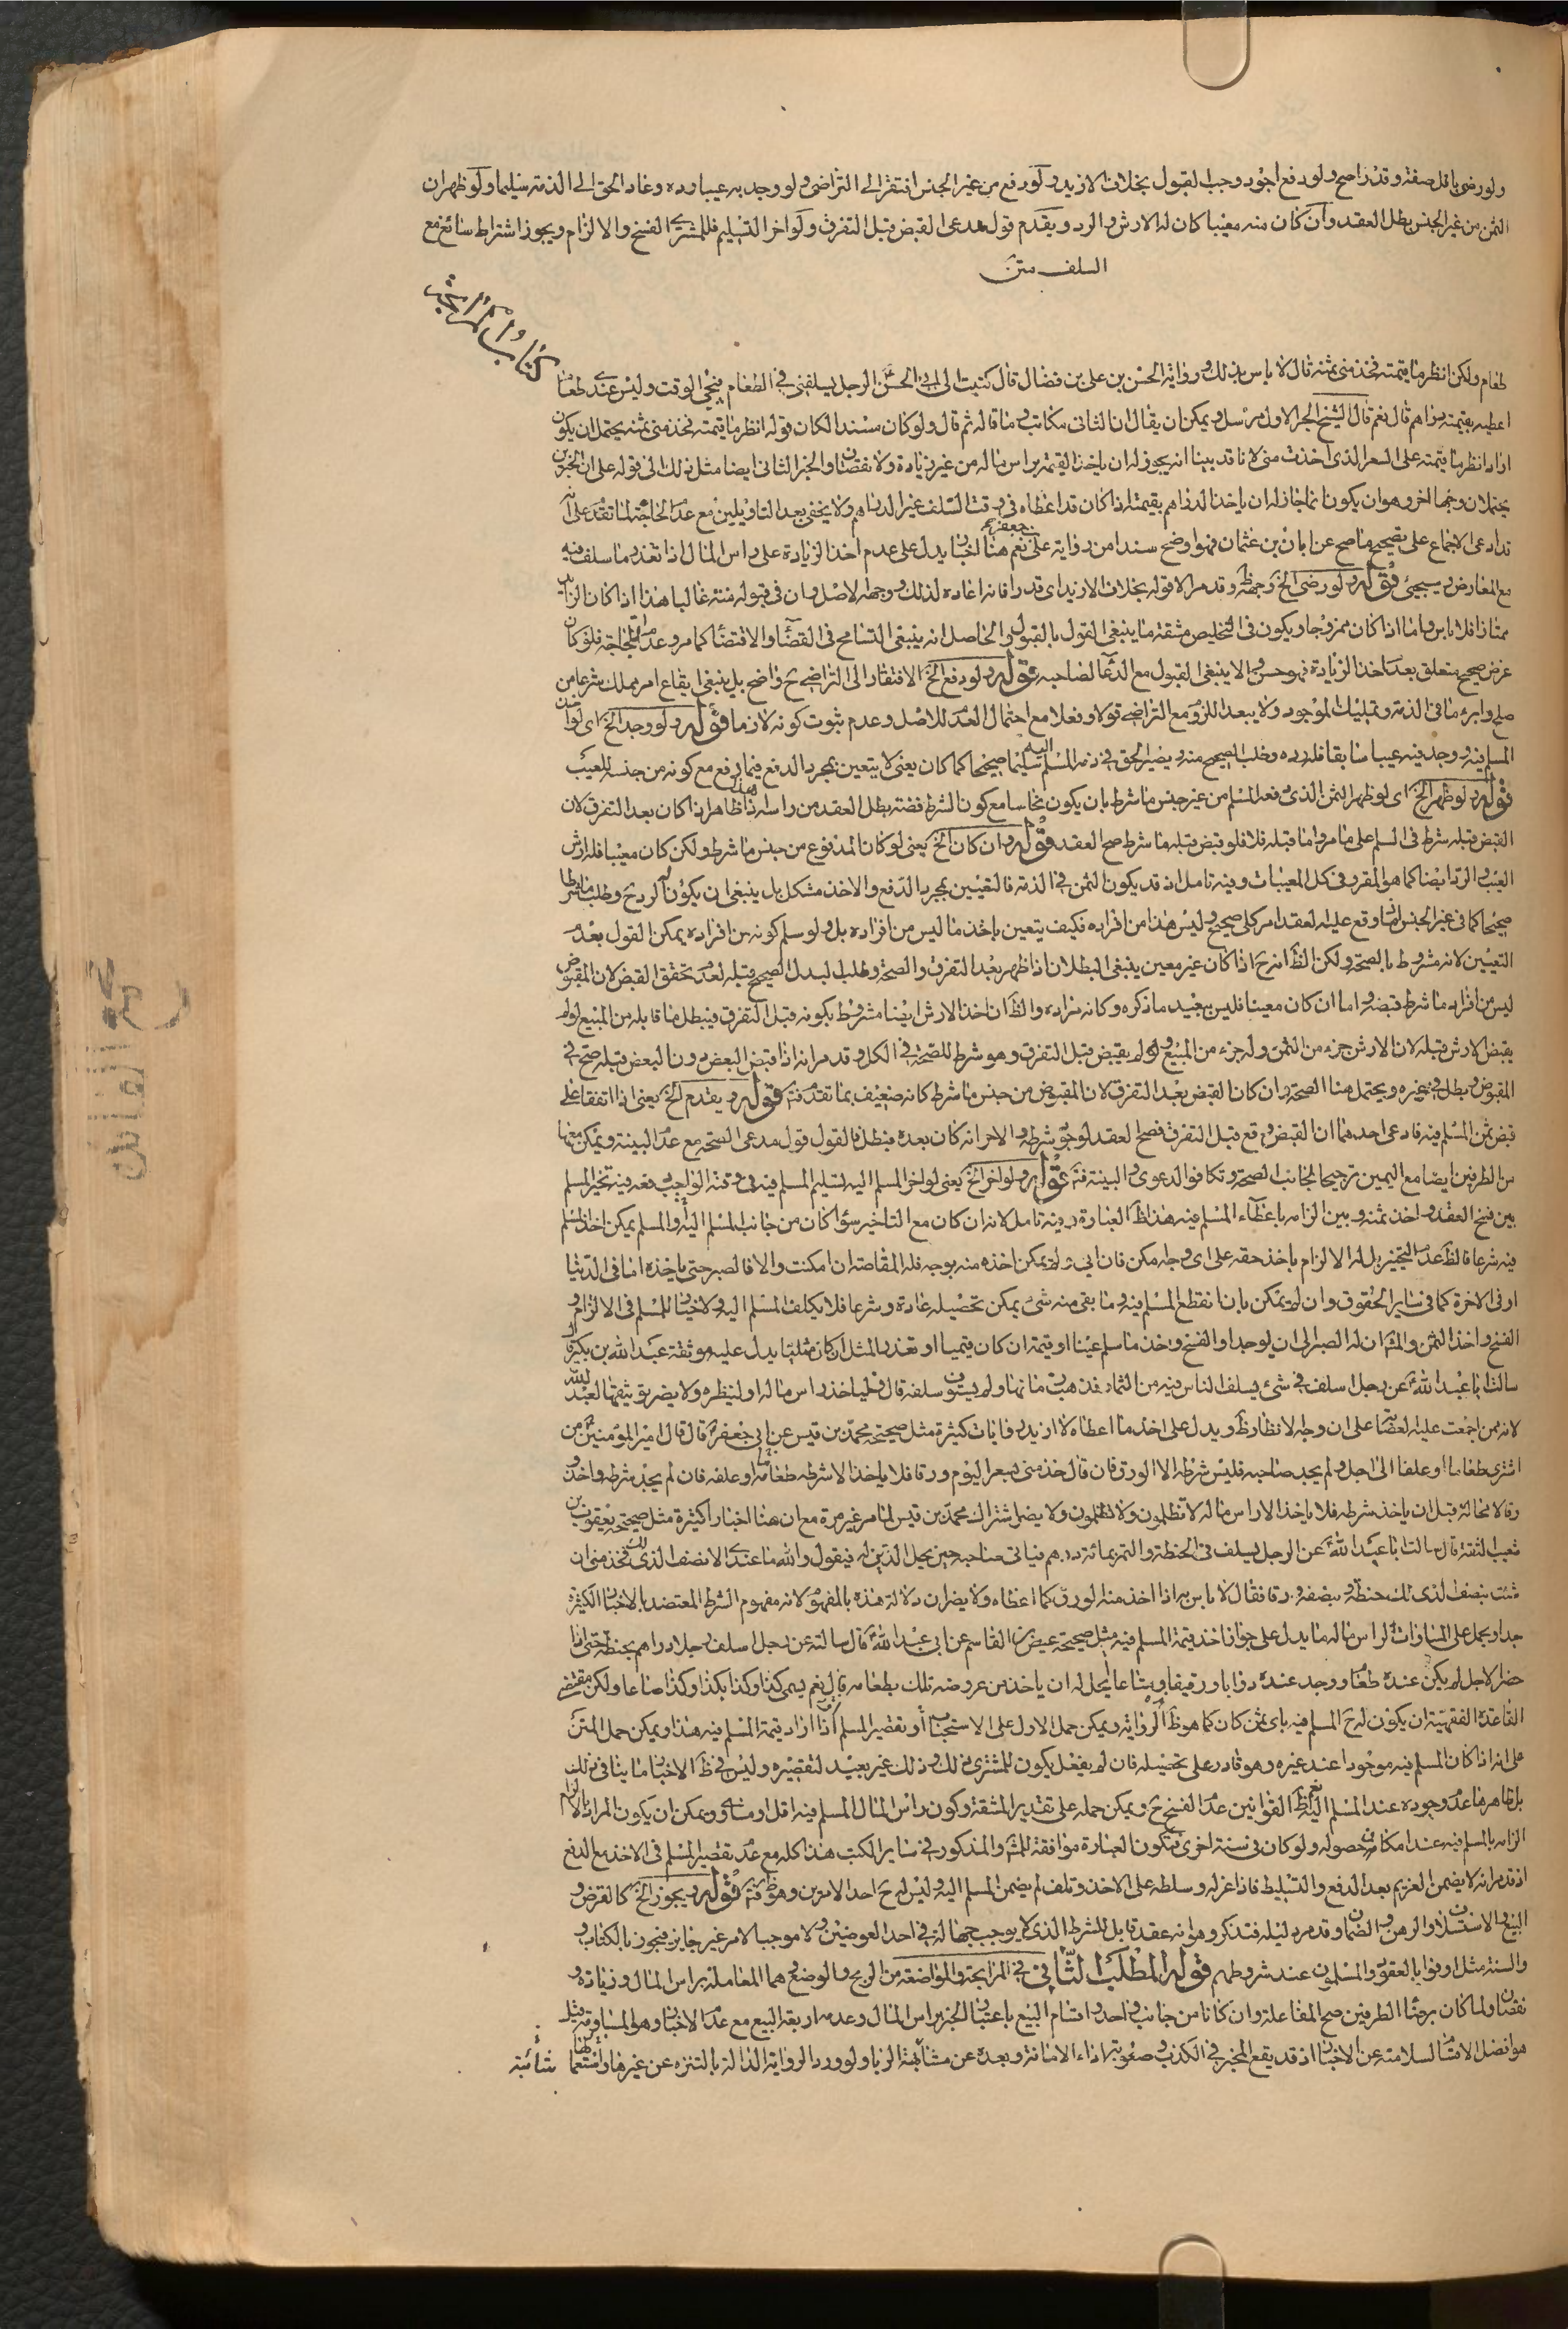 ولو رضى باقل صفة وقدرا صح ولو دفع اجود وجب القبول بخلاف الازيد ولو دفع من غير الجنس افتقر الى التراضى ولو وجد به عيبا رده وعاد الحق الى الذمة سليما ولو ظهر ان
الثمن من غير الجنس بطل العقد وان كان منه معيبا كان له الارش والرد ويقدم قول مدعى القبض قبل التفرق ولو اخر التسليم فللمشترى الفسخ والالزام ويجوز اشتراط سائغ مع
السلف متن
كتاب المرابحة
طعام ولكن انظر ما قيمته فخذ منى ثمنه قال لا باس بذلك ورواية الحسن بن على بن فضال قال كتبت الى ابى الحسن الرجل يسلفنى فى الطعام فيجئ الوقت وليس عندى طعام
اعطيه بقيمته دراهم قال نعم قال الشيخ الخبر الاول مرسل ويمكن ان يقال ان الثانى مكاتب وما قاله ثم قال ولو كان مسندا لكان قوله انظر ما قيمته فخذ منى ثمنه يحتمل ان يكون
اراد انظر ما قيمته على السعر الذى اخذت منى لانا قد بينا انه يجوز له ان ياخذ القيمة براس ماله من غير زيادة ولا نقصان والخبر الثانى ايضا مثل ذلك الى قوله على ان الخبرين
يحتملان وجها اخر وهو ان يكون انما جاز له ان ياخذ الدراهم بقيمته اذا كان قد اعطاه فى وقت السلف غير الدراهم ولا يخفى بعد التاويلين مع عدم الحاجة لما تقدم على انه
قد ادعى الاجماع على تصحيح ما صح عن ابان بن عثمان فهو اوضح سندا من رواية على بن جعفر نعم هنا اخبار يدل على عدم اخذ الزيادة على راس المال اذا تعذر ما سلف فيه
مع المعارض وسيجئ قوله ولو رضى الخ وجهه ظ وقد مر الا قوله بخلاف الازيد اى قدرا فانه اعاده لذلك ووجهه الاصل وان فى قبوله منة غالبا هذا اذا كان الزائد
ممتازا فلا باس واما اذا كان ممزوجا ويكون فى التخليص مشقة ما ينبغى القول بالقبول والحاصل انه ينبغى التسامح فى القضاء والاقتضاء كما مر وعدم اللجاجة فلو كان
غرض صحيح متعلق بعدم اخذ الزيادة فهو حسن والا ينبغى القبول مع الدعاء لصاحبه قوله ولو دفع الخ الافتقار الى التراضى ح واضح بل ينبغى ايقاع امر مملك شرعا من
صلح وابراء ما فى الذمة وتمليك الموجود ولا يبعد اللزوم مع التراضى قولا وفعلا مع احتمال العدم للاصل وعدم ثبوت كونه لازما قوله ولو وجد الخ اى لو ان
المسلم فيه وجد فيه عيبا سابقا فله رده وطلب الصحيح منه ويصير الحق فى ذمة المسلم اليه سليما صحيحا كما كان يعنى لا يتعين بمجرد الدفع فيما دفع مع كونه من جنسه للعيب
قوله ولو ظهر الخ اى لو ظهر الثمن الذى دفعه المسلم من غير جنس ما شرط بان يكون نحاسا مع كون الشرط فضة بطل العقد من راسه هذا ظاهر اذا كان بعد التفرق لان
القبض قبله شرط فى السلم على ما مر واما قبله فلا فلو قبض قبله ما شرط صح العقد قوله وان كان الخ يعنى لو كان المدفوع من جنس ما شرط ولكن كان معيبا فله ارش
العيب والرد ايضا كما هو المقرر فى كل المعيبات وفيه تامل اذ قد يكون الثمن فى الذمة فالتعيين بمجرد الدفع والاخذ مشكل بل ينبغى ان يكون له الرد ح وطلب ما شرط
صحيحا كما فى غير الجنس اذ ما وقع عليه العقد امر كلى صحيح وليس هذا من افراده فكيف يتعين باخذ ما ليس من افراده بل ولو سلم كونه من افراده يمكن القول بعدم
التعيين لانه مشروط بالصحة ولكن الظ انه ح اذا كان غير معين ينبغى البطلان اذا ظهر بعد التفرق والصحة وطلب البدل الصحيح قبله لعدم تحقق القبض لان المقبوض
ليس من افراد ما شرط قبضه واما ان كان معينا فليس ببعيد ما ذكره وكانه مراده والظ ان اخذ الارش ايضا مشروط بكونه قبل التفرق فيبطل ما قابله من المبيع لو لم
يقبض الارش قبله لان الارش جزء من الثمن وله جزء من المبيع ولو لم يقبض قبل التفرق وهو شرط للصحة فى الكل وقد مر انه اذا قبض البعض دون البعض قبله صح فى
المقبوض وبطل فى غيره ويحتمل هنا الصحة وان كان القبض بعد التفرق لان المقبوض من جنس ما شرط كانه ضعيف بما تقدم فتم قوله ويقدم الخ يعنى اذا اتفقا على
قبض ثمن المسلم فيه فادعى احدهما ان القبض وقع قبل التفرق فصح العقد لوجود شرطه والاخر انه كان بعده فبطل فالقول قول مدعى الصحة مع عدم البينة ويمكن معها
من الطرفين ايضا مع اليمين ترجيحا لجانب الصحة وتكافوا الدعوى والبينة فتم قوله ولو اخر الخ يعنى لو اخر المسلم اليه تسليم المسلم فيه فى وقته الواجب دفعه فيه تخير المسلم
بين فسخ العقد واخذ ثمنه وبين الزامه باعطاء المسلم فيه هذا ظ العبارة وفيه تامل لانه ان كان مع التاخير سواء كان من جانب المسلم اليه والمسلم يمكن اخذ المسلم
فيه شرعا فالظ عدم التخيير بل له الالزام باخذ حقه على اى وجه امكن فان ابى ولم يمكن اخذه منه بوجه فله المقاصة ان امكنت والا فالصبر حتى ياخذه اما فى الدنيا
او فى الاخرة كما فى ساير الحقوق وان لم يمكن بان انقطع المسلم فيه وما بقى منه شئ يمكن تحصيله عادة وشرعا فلا يكلف المسلم اليه ولا خيار للمسلم فى الالزام و
الفسخ واخذ الثمن والمش ان له الصبر الى ان يوجد او الفسخ واخذ ما سلم عينا او قيمة ان كان قيميا او تعذر المثل ان كان مثليا يدل عليه موثقة عبد الله بن بكير قال
سالت ابا عبد الله ع عن رجل اسلف فى شئ يسلف الناس فيه من الثمار فذهبت ثمارها ولم يستوف سلفه قال فلياخذ راس ماله او لينظره ولا يضر توثيقها لعبد الله
لانه ممن اجمعت عليه العصابة على ان وجه الانظار ظ ويدل على اخذ ما اعطاه لا ازيد روايات كثيرة مثل صحيحة محمد بن قيس عن ابى جعفر ع قال قال امير المؤمنين ع من
اشترى طعاما او علفا الى اجل ولم يجد صاحبه فليس شرطه الا الورق فان قال خذ منى بسعر اليوم ورقا فلا ياخذ الا شرطه طعامه او علفه فان لم يجد شرطه واخذ
ورقا لا محالة قبل ان ياخذ شرطه فلا ياخذ الا راس ماله لا تظلمون ولا تظلمون ولا يضر اشتراك محمد بن قيس لما مر غير مرة مع ان هنا اخبارا كثيرة مثل صحيحة يعقوب بن
شعيب الثقة قال سالت ابا عبد الله ع عن الرجل يسلف فى الحنطة والتمر بمائة درهم فياتى صاحبه حين يحل الدين له فيقول والله ما عندى الا نصف الذى لك فخذ منى ان
شئت بنصف الذى لك حنطة وبنصفه ورقا فقال لا باس به اذا اخذ منه الورق كما اعطاه ولا يضر ان دلالة هذه بالمفهوم لانه مفهوم الشرط المعتضد بالاخبار الكثيرة
جدا ويحمل على المساواة لراس ماله ما يدل على جواز اخذ قيمة المسلم فيه مثل صحيحة عيص بن القاسم عن ابى عبد الله ع قال سالته عن رجل اسلف رجلا دراهم بحنطة حتى اذا
حضر الاجل لم يكن عنده طعام ووجد عنده دوابا ورقيقا ومتاعا ايحل له ان ياخذ من عروضه تلك بطعامه قال نعم يسمى كذا وكذا بكذا وكذا صاعا ولكن مقتضى
القاعدة الفقهية ان يكون له ح المسلم فيه باى ثمن كان كما هو ظ الرواية ويمكن حمل الاول على الاستحباب او تقصير المسلم اذا اراد قيمة المسلم فيه هذا ويمكن حمل المتن
على انه اذا كان المسلم فيه موجودا عند غيره وهو قادر على تحصيله فان لم يفعل يكون للمشترى ذلك وذلك غير بعيد لتقصيره وليس فى ظ الاخبار ما ينافى ذلك
بل ظاهرها عدم وجوده عند المسلم اليه نعم ظ القوانين عدم الفسخ ح ويمكن حمله على تقدير المشقة وكون راس المال المسلم فيه اقل او مساو ويمكن ان يكون المراد بالالزام
الزامه بالمسلم فيه عند امكان حصوله ولو كان فى سنة اخرى فتكون العبارة موافقة للمش والمذكور فى ساير الكتب هذا كله مع عدم تقصير المسلم فى الاخذ مع الدفع
اذ قد مر انه لا يضمن الغريم بعد الدفع والتسليط فاذا عزله وسلطه على الاخذ وتلف لم يضمن المسلم اليه وليس له ح احد الامرين وهو ظ فتم قوله ويجوز الخ كالقرض و
البيع والاستسلاف والرهن والضمان وقد مر دليله فتذكر وهو انه عقد قابل للشرط الذى لا يوجب جهالة فى احد العوضين ولا موجبا لامر غير جايز فيجوز بالكتاب و
والسنة مثل اوفوا بالعقود والمسلمون عند شروطهم قوله المطلب الثانى فى المرابحة والمواضعة من الربح والوضع وهما المعاملة براس المال وزيادة و
نقصان ولما كان برضا الطرفين صح المفاعلة وان كانا من جانب واحد واقسام البيع باعتبار الخبر براس المال وعدمه اربعة البيع مع عدم الاخبار وهو المساومة قيل
هو افضل الاقسام لسلامته عن الاخبار اذ قد يقع المخبر فى الكذب وصعوبة اداء الامانة وبعده عن مشابهة الربا ولورود الرواية الدالة بالتنزه عن غيرها واستعمالها شائبة